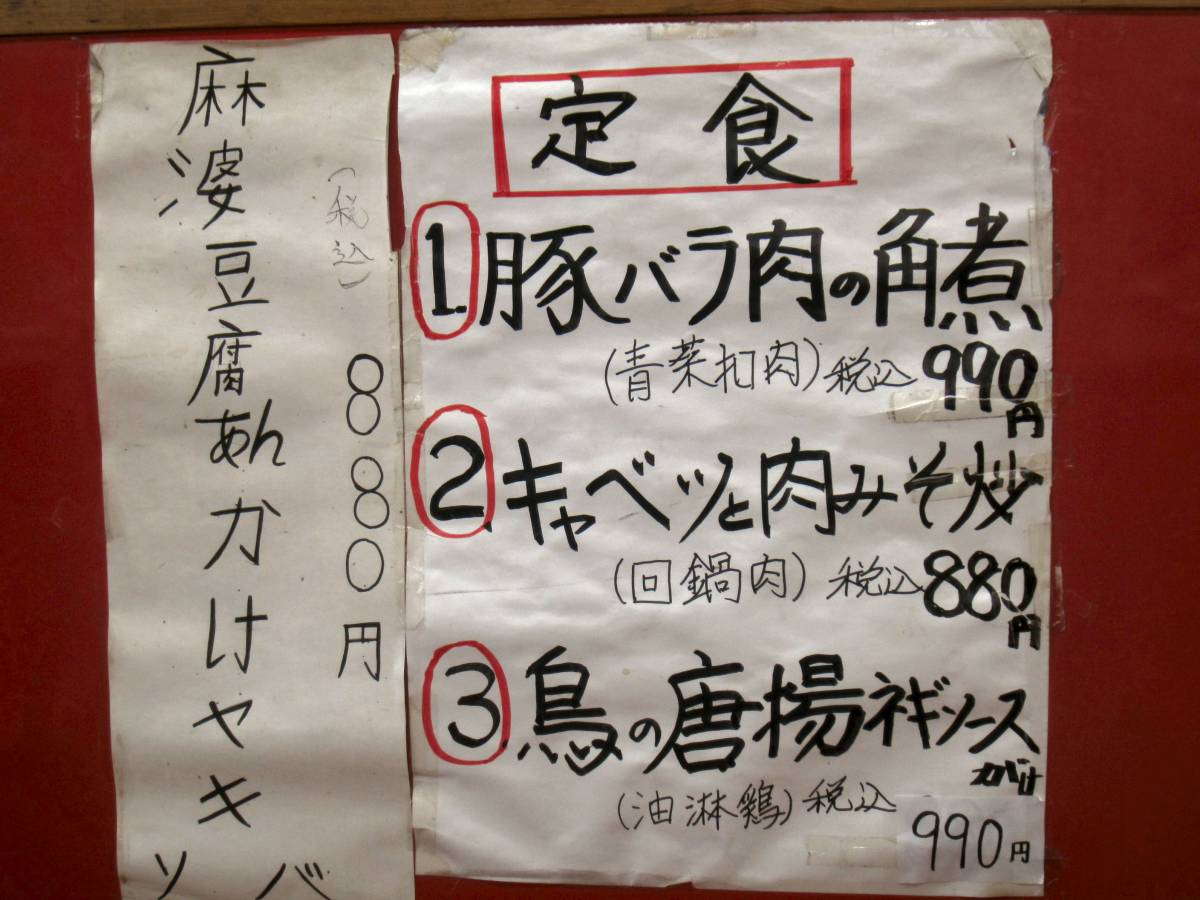 定食
1.豚バラ肉の角煮
(青菜扣肉)税込990円
2.キャベツと肉みそ炒
(回鍋肉)税込880円
3.鳥の唐揚ネギソース
がけ
(油淋鶏)税込
990円
麻婆豆腐あんかけヤキソバ
(税込)880円